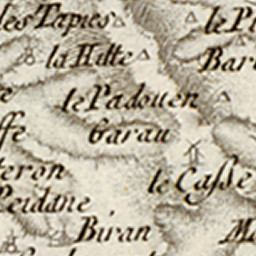 les Tapies
le Pi
la Hitte
Bar
le Padouen
ffe
Garau
teron
le Casse
Peidane
Biran